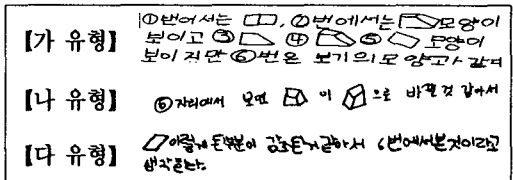 【가 유형】 ①번에서는 ②번에서는 모양이
보이고 ③ ④ ⑤ 모양이
보이지만 ⑥번은 보기의 모양과 같다
【나 유형】 ⑥자리에서 보면 이 으로 바뀔것 같아서
【다 유형】 이렇게 된부분이 강조된거 같아서 6번에서본것이라고
생각한다.